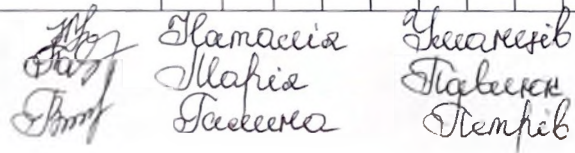 Наталія Уманців
Марія Павлюк
Галина Петрів